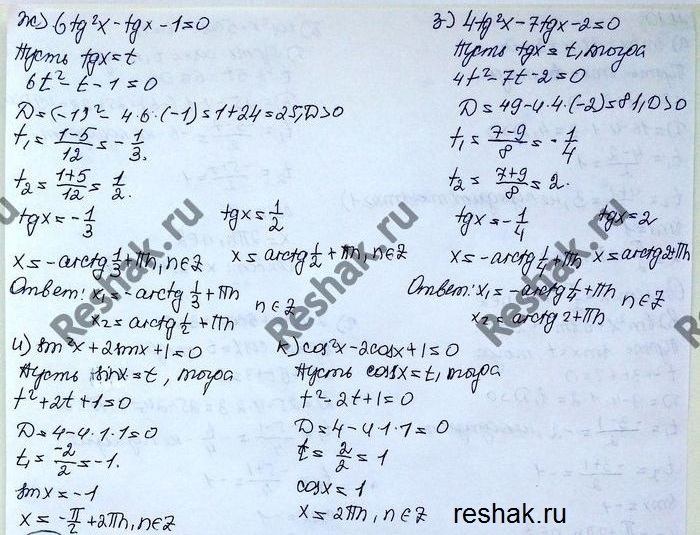 ж) 6tg²x - tgx - 1 = 0
Пусть tgx = t
6t² - t - 1 = 0
D = (-1)² - 4·6·(-1) = 1 + 24 = 25, D > 0
t₁ = (1-5)/12 = -1/3.
t₂ = (1+5)/12 = 1/2.
tgx = -1/3 tgx = 1/2
x = -arctg 1/3 + πn, n∈Z x = arctg 1/2 + πn, n∈Z
Ответ: x₁ = -arctg 1/3 + πn
x₂ = arctg 1/2 + πn n∈Z
з) 4tg²x - 7tgx - 2 = 0
Пусть tgx = t, тогда
4t² - 7t - 2 = 0
D = 49 - 4·4·(-2) = 81, D > 0
t₁ = (7-9)/8 = -1/4
t₂ = (7+9)/8 = 2.
tgx = -1/4 tgx = 2
x = -arctg 1/4 + πn x = arctg 2 + πn
Ответ: x₁ = -arctg 1/4 + πn
x₂ = arctg 2 + πn n∈Z
и) sin²x + 2sinx + 1 = 0
Пусть sinx = t, тогда
t² + 2t + 1 = 0
D = 4 - 4·1·1 = 0
t₁ = -2/2 = -1.
sinx = -1
x = -π/2 + 2πn, n∈Z
к) cos²x - 2cosx + 1 = 0
Пусть cosx = t, тогда
t² - 2t + 1 = 0
D = 4 - 4·1·1 = 0
t = 2/2 = 1
cosx = 1
x = 2πn, n∈Z
Reshak.ru
Reshak.ru
Reshak.ru
reshak.ru